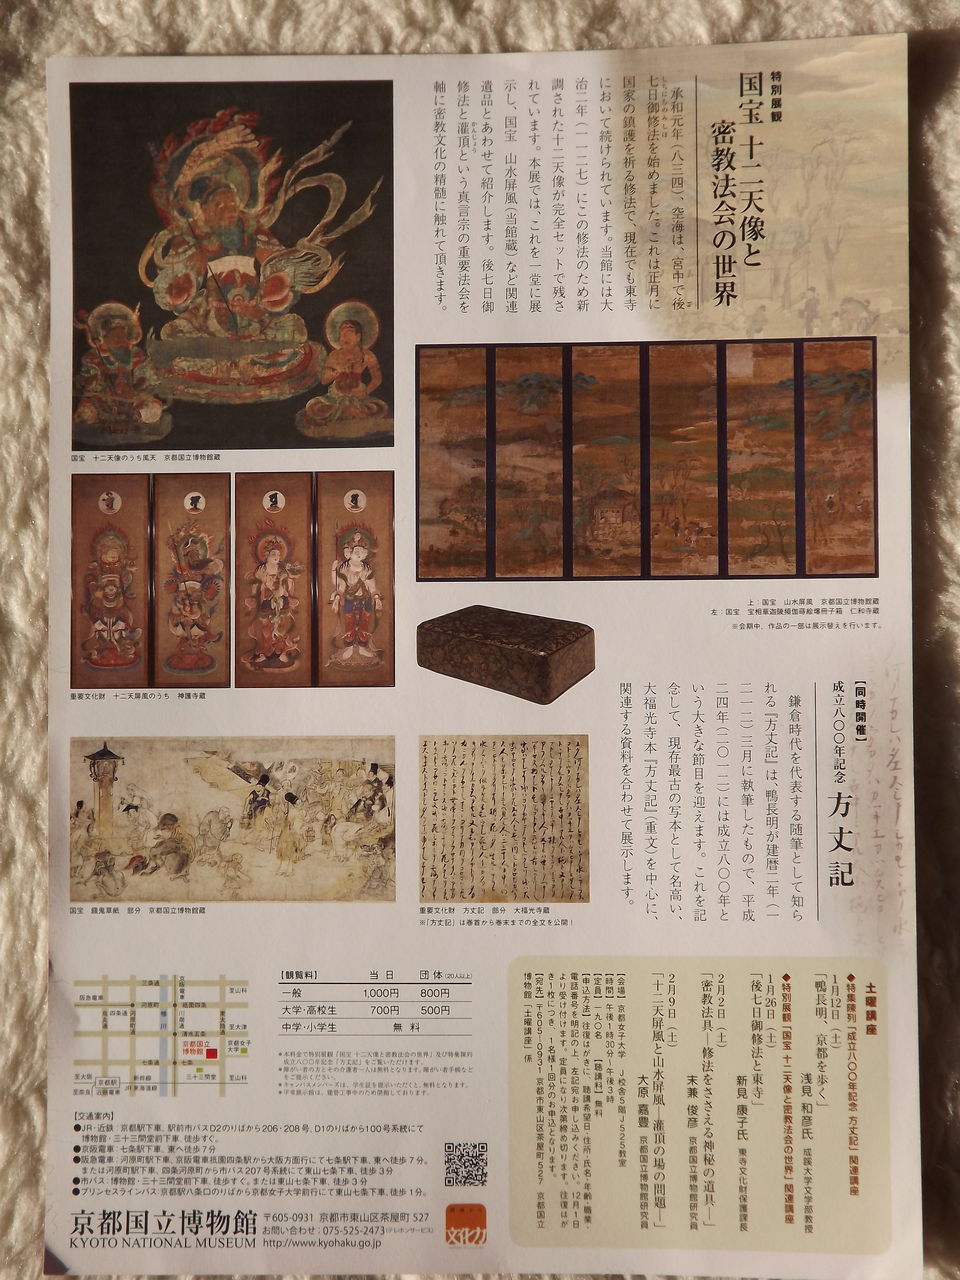 特別展観
国宝 十二天像と
密教法会の世界
承和元年(八三四)、空海は、宮中で後
七日御修法を始めました。これは正月に
国家の鎮護を祈る修法で、現在でも東寺
において続けられています。当館には大
治二年(一一二七)にこの修法のため新
調された十二天像が完全セットで残さ
れています。本展では、これを一堂に展
示し、国宝 山水屏風(当館蔵)など関連
遺品とあわせて紹介します。後七日御
修法と灌頂という真言宗の重要法会を
軸に密教文化の精髄に触れて頂きます。
国宝 十二天像のうち風天 京都国立博物館蔵
重要文化財 十二天屏風のうち 神護寺蔵
上:国宝 山水屏風 京都国立博物館蔵
左:国宝 宝相華迦陵頻伽蒔絵𡑮冊子箱 仁和寺蔵
※会期中、作品の一部は展示替えを行います。
【同時開催】
成立八〇〇年記念 方丈記
鎌倉時代を代表する随筆として知ら
れる『方丈記』は、鴨長明が建暦二年(一
二一二)三月に執筆したもので、平成
二四年(二〇一二)には成立八〇〇年と
いう大きな節目を迎えます。これを記
念して、現存最古の写本として名高い、
大福光寺本『方丈記』(重文)を中心に、
関連する資料を合わせて展示します。
国宝 餓鬼草紙 部分 京都国立博物館蔵
重要文化財 方丈記 部分 大福光寺蔵
※「方丈記」は巻首から巻末までの全文を公開!
土曜講座
◆特集陳列「成立八〇〇年記念 方丈記」関連講座
1月12日(土)
「鴨長明、京都を歩く」
浅見 和彦氏 成蹊大学文学部教授
◆特別展観「国宝 十二天像と密教法会の世界」関連講座
1月26日(土)
「後七日御修法と東寺」
新見 康子氏 東寺文化財保護課長
2月2日(土)
「密教法具―修法をささえる神秘の道具―」
末兼 俊彦 京都国立博物館研究員
2月9日(土)
「十二天屏風と山水屏風―灌頂の場の問題―」
大原 嘉豊 京都国立博物館研究員
【会場】京都女子大学 J校舎5階J525教室
【時間】午後1時30分~午後3時
【定員】一九〇名 【聴講料】無料
【申込方法】往復はがきに、聴講希望日・住所・氏名・年齢・職業・
電話番号を明記の上、左記宛お申し込みください。12月1日
より受け付けます。定員になり次第締め切ります。往復はが
き1枚につき、1名様1回分のお申込となります。
【宛先】〒605-0931 京都市東山区茶屋町527 京都国立
博物館「土曜講座」係
【観覧料】 当日 団体(20人以上)
一般 1,000円 800円
大学・高校生 700円 500円
中学・小学生 無料
*本料金で特別展観「国宝 十二天像と密教法会の世界」及び特集陳列
成立八〇〇年記念「方丈記」をご覧いただけます。
*障がい者の方とその介護者一人は無料となります。障がい者手帳など
をご提示ください。
*キャンパスメンバーズは、学生証を提示いただくと、無料となります。
*平常展示館は、建替工事中のため閉館しております。
三条通
京阪電車
至山科
阪急電車
河原町
祇園四条
烏丸通
四条通
河原町通
鴨川
川端通
東大路通
至大津
清水五条
京都国立
博物館
京都女子
大学
七条通
七条
三十三間堂
至大阪
京都駅
新幹線
JR 東海道線
至山科
至奈良
近鉄電車
【交通案内】
●JR・近鉄:京都駅下車、駅前市バスD2のりばから206・208号、D1のりばから100号系統にて
博物館・三十三間堂前下車、徒歩すぐ。
●京阪電車:七条駅下車、東へ徒歩7分
●阪急電車:河原町駅下車、京阪電車祇園四条駅から大阪方面行にて七条駅下車、東へ徒歩7分。
または河原町駅下車、四条河原町から市バス207号系統にて東山七条下車、徒歩3分
●市バス:博物館・三十三間堂前下車、徒歩すぐ。または東山七条下車、徒歩3分
●プリンセスラインバス:京都駅八条口のりばから京都女子大学前行にて東山七条下車、徒歩1分。
京都国立博物館
KYOTO NATIONAL MUSEUM
〒605-0931 京都市東山区茶屋町 527
お問い合わせ:075-525-2473(テレホンサービス)
http://www.kyohaku.go.jp
文化力